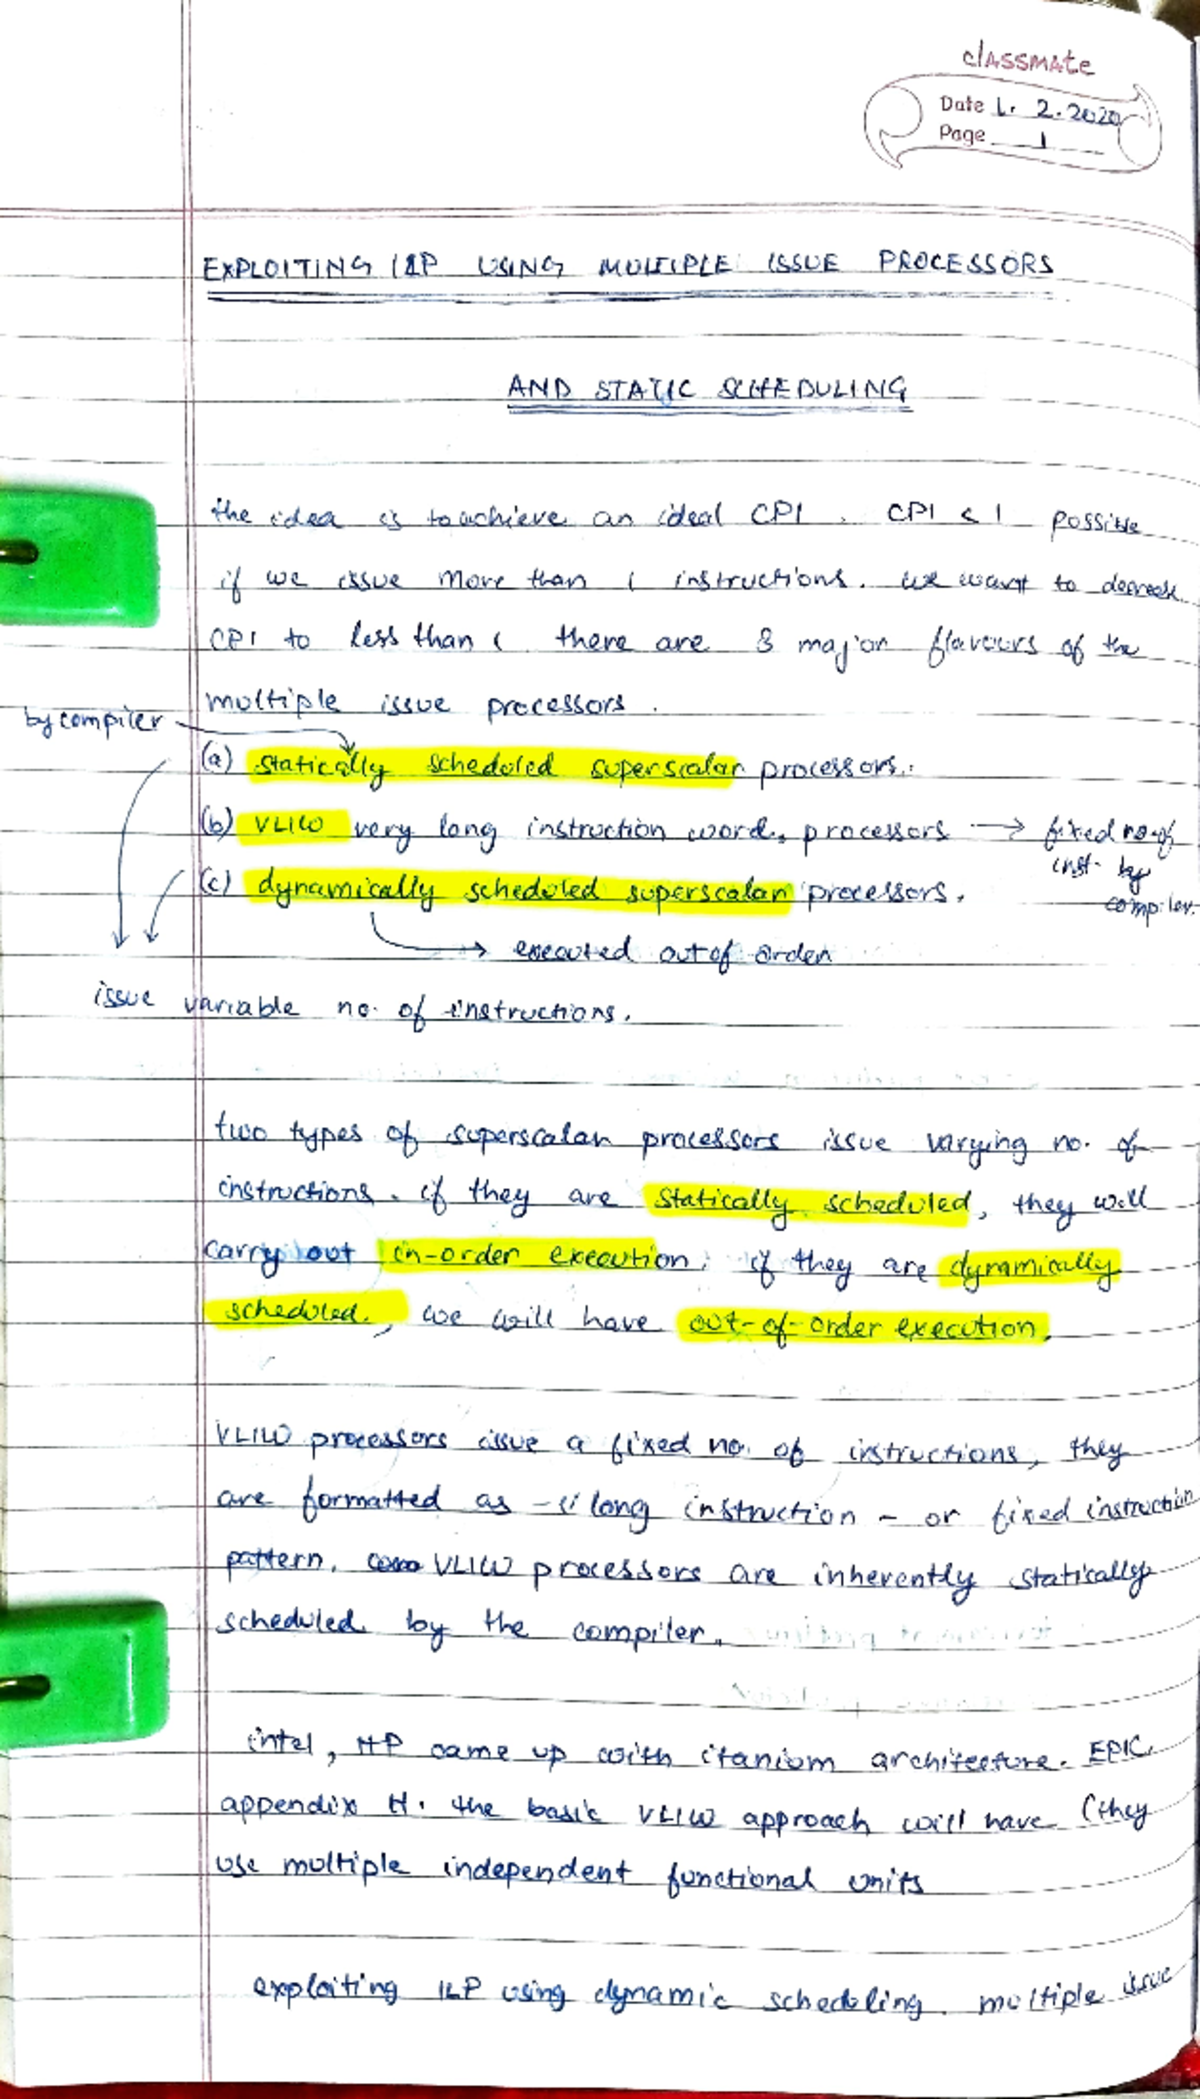 classmate
Date 1. 2. 2020
Page 1
EXPLOITING ILP USING MULTIPLE ISSUE PROCESSORS
AND STATIC SCHEDULING
the idea is to achieve an ideal CPI. CPI < 1 possible
if we issue more than 1 instructions. we want to decrease
CPI to less than 1 there are 3 major flavours of the
multiple issue processors.
by compiler
(a) statically scheduled superscalar processors.
(b) VLIW very long instruction word, processors → fixed no. of
inst. by
compiler.
(c) dynamically scheduled superscalar processors.
→ executed out of order
issue variable no. of instructions.
two types of superscalar processors issue varying no. of
instructions. if they are statically scheduled, they will
carry out in-order execution; if they are dynamically
scheduled, we will have out-of-order execution.
VLIW processors issue a fixed no. of instructions, they
are formatted as - 1 long instruction - or fixed instruction
pattern. VLIW processors are inherently statically
scheduled by the compiler.
intel, HP came up with itanium architecture. EPIC,
appendix H. the basic VLIW approach will have (they
use multiple independent functional units
exploiting ILP using dynamic scheduling. multiple issue